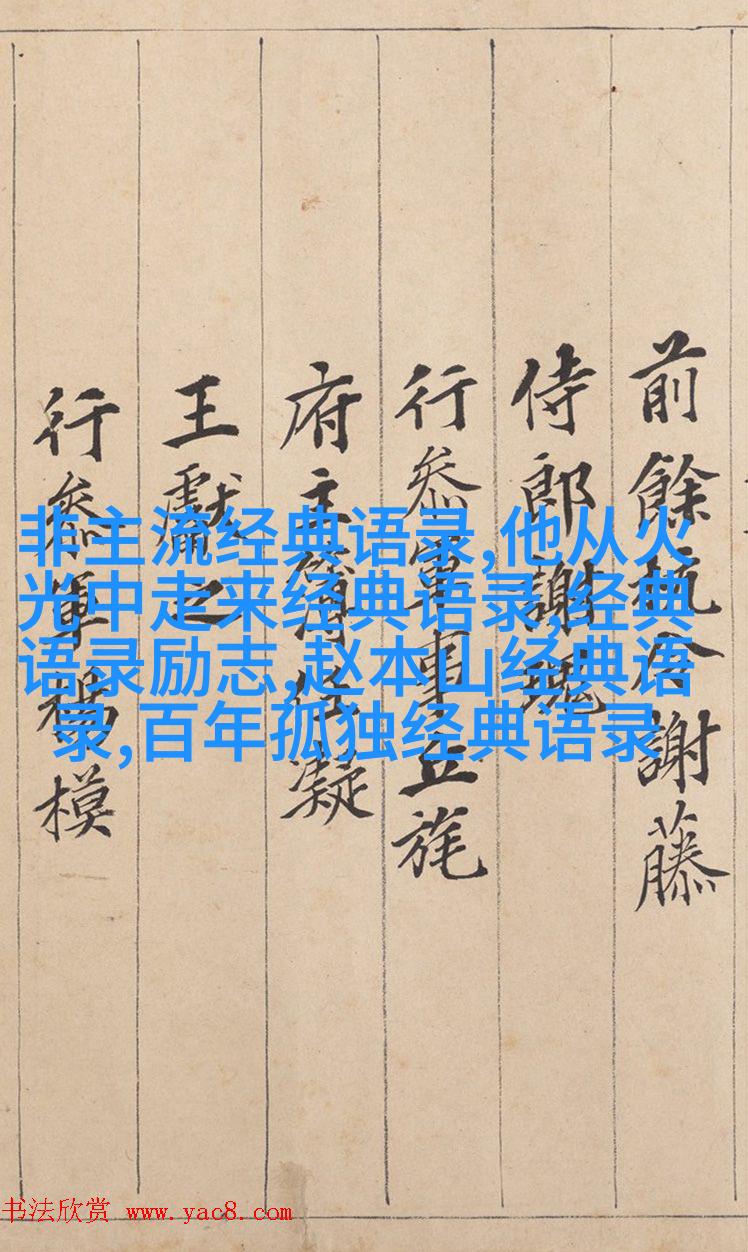 前餘杭令謝藤
侍郎謝
行叅軍事丘旄
府主簿任凝
王獻之
行叅軍楊模
非主流经典语录,他从火
光中走来经典语录,经典
语录励志,赵本山经典语
录,百年孤独经典语录
书法欣赏 www.yac8.com